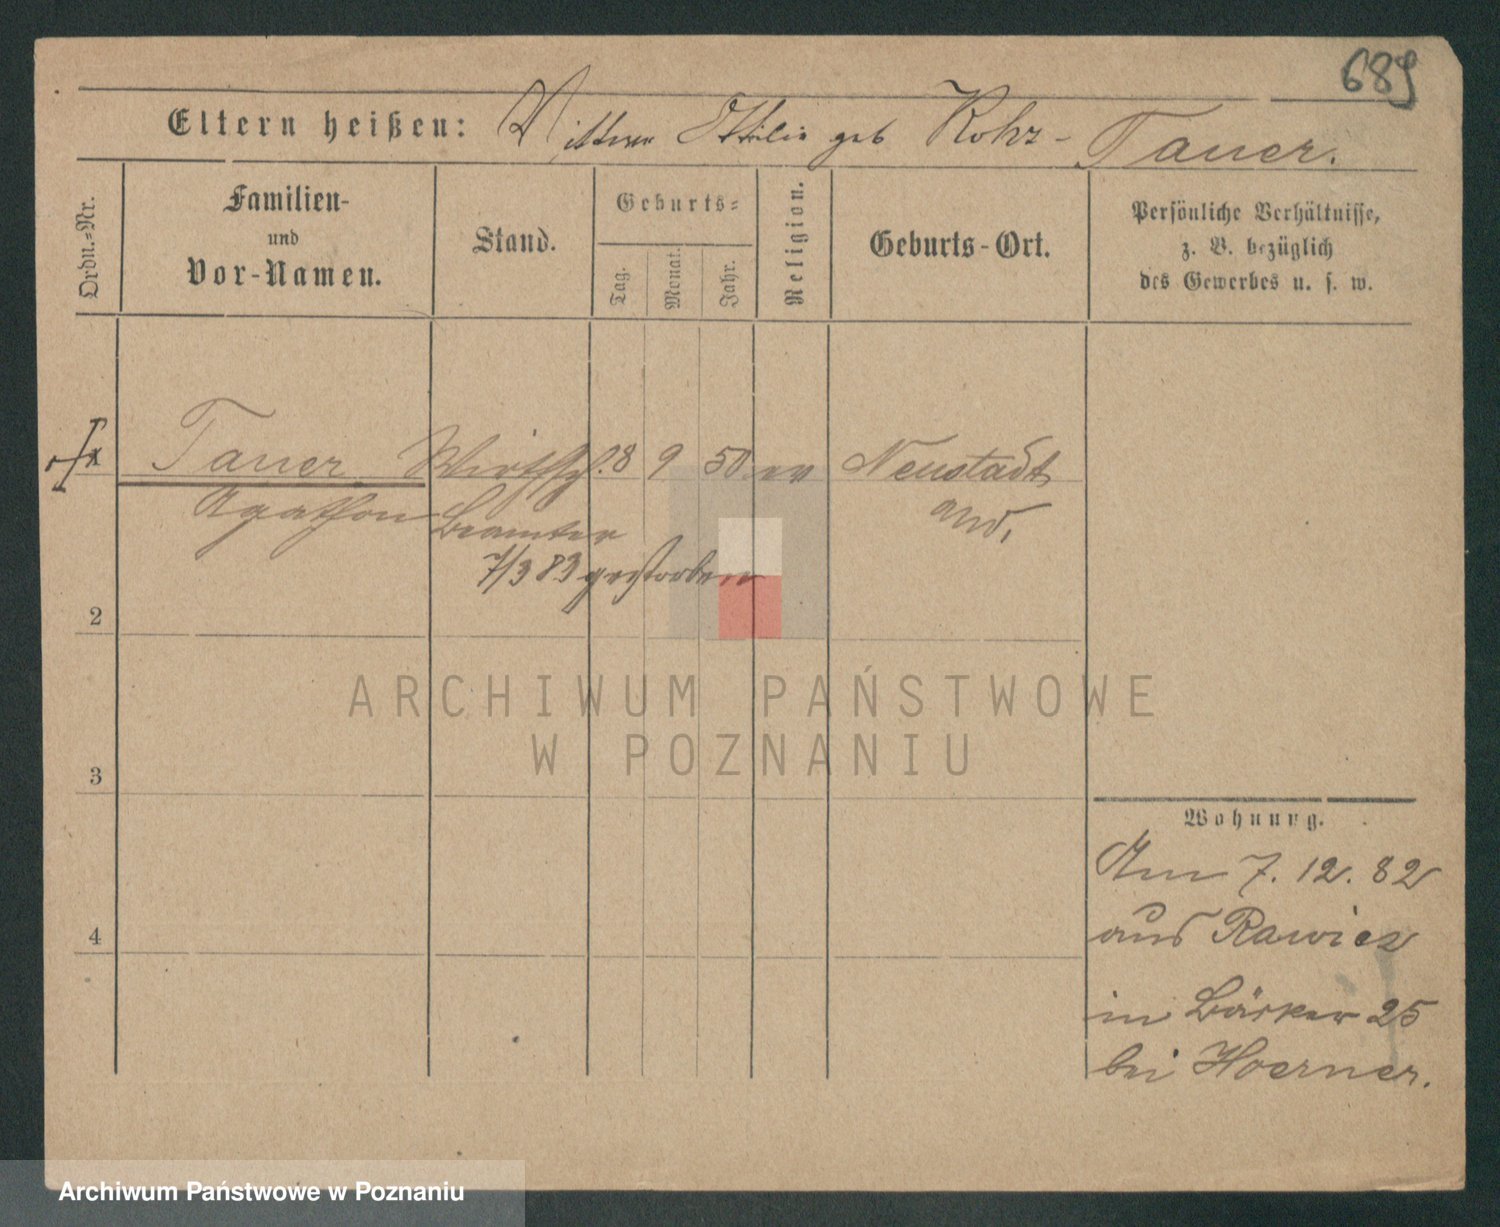 689
Eltern heißen: Wittwe Ottilie geb Rohr-Tauer.
Ordn.-Nr.
Familien-
und
Vor-Namen.
Stand.
Geburts-
Tag.
Monat.
Jahr.
Religion.
Geburts-Ort.
Persönliche Verhältnisse,
z. B. bezüglich
des Gewerbes u. s. w.
Tauer Wirthsch. 8 9 50 ev Neustadt
Agathon Beamter
7/3 83 gestorben
2
3
4
ARCHIWUM PAŃSTWOWE
W POZNANIU
Wohnung.
Am 7. 12. 82
aus Rawicz
in Bäcker 25
bei Hoerner.
Archiwum Państwowe w Poznaniu